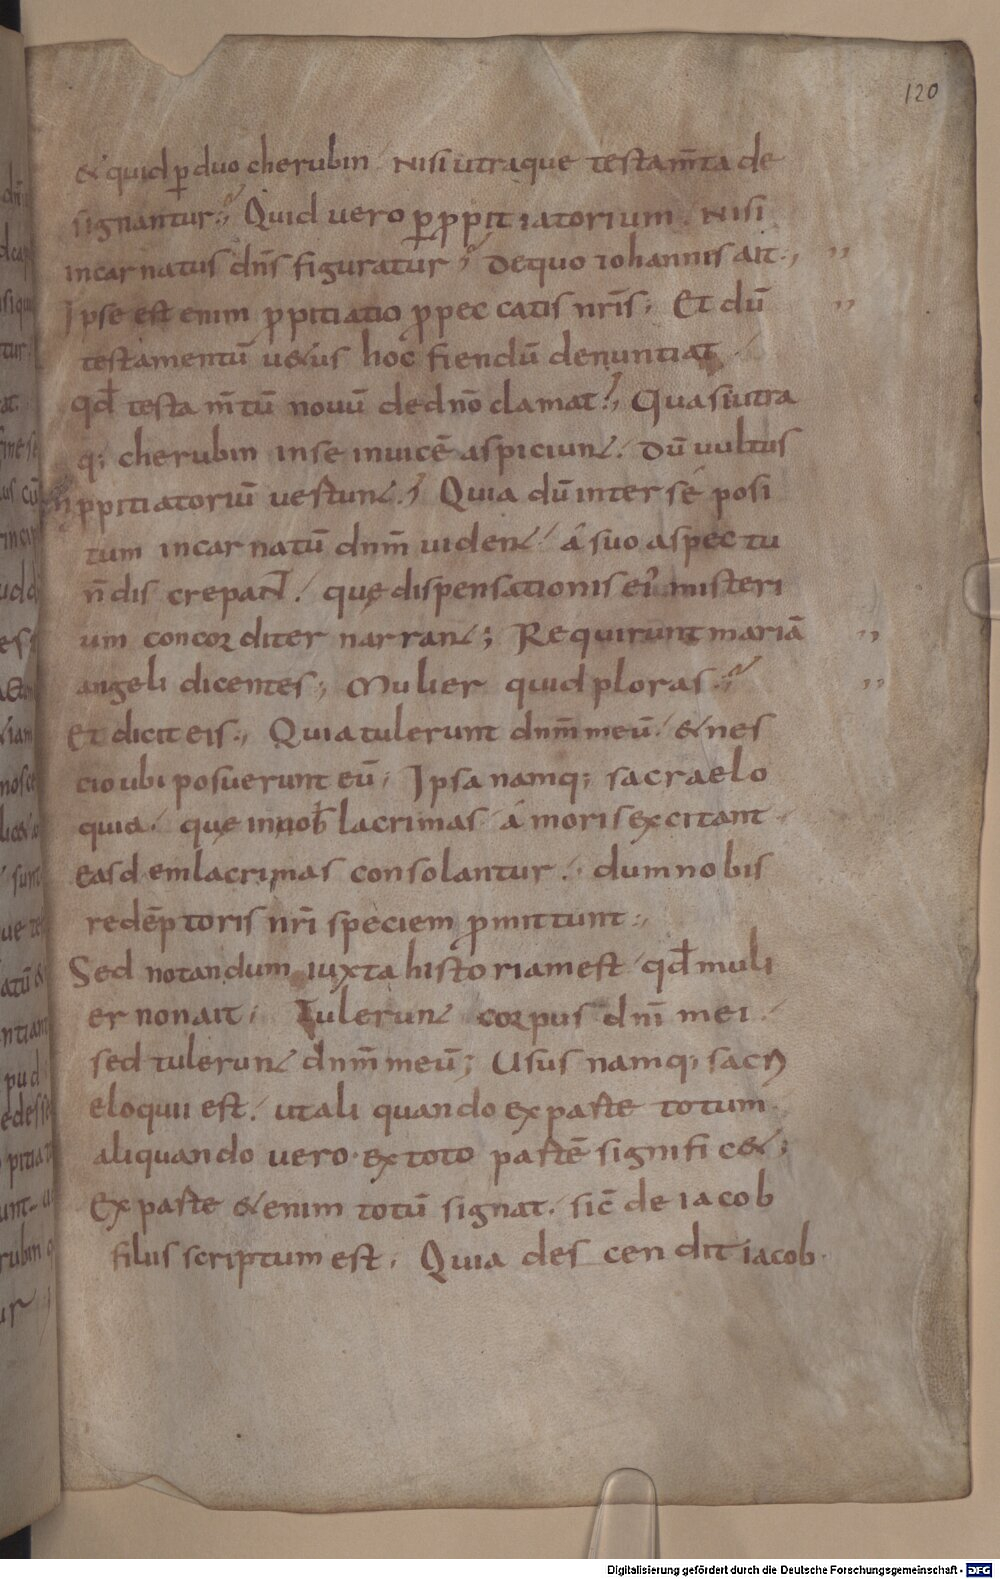 120
& quid ꝑ duo cherubin / Nisi utraque testam̄ta de
signantur; Quid vero ꝑ ꝓpit iatorium / Nisi
incarnatus dn̄s figuratur? De quo iohannis ait.,
Ipse est enim ꝓpitiatio ꝓ peccatis nr̄is; Et dū
testamentū uetus hoc fiendū denuntiat /
qđ testa m̄tū novū de dn̄o clamat?, Quasi utra
q; cherubin in se invicē aspiciunt. Dū vultus
in ꝓpitiatoriū vestunt.? Quia dū inter sé posi
tum incarnatū dnm̄ vident / á suo aspectu
n̄ discrepant. quę dispensationis ei' misteri
um concorditer narrant; Requirunt mariā
angeli dicentes; Mulier quid ploras.?
Et dicit eis., Quia tulerunt dnm̄ meū. & nes
cio ubi posuerunt eū; Ipsa namq; sacra elo
quia. quę in nob̄ lacrimas ámoris excitant
easdem lacrimas consolantur. dum nobis
redēptoris nr̄i speciem ꝓmittunt.,
Sed notandum iuxta historiam est / qđ muli
er non ait. Tulerunt corpus dnī mei.
sed tulerunt dnm̄ meū; Usus namq; sacri
eloquii est. ut ali quando ex parte totum
aliquando vero ex toto partē signific&;
Ex parte &enim totū signat. sic̄ de iacob
filiis scriptum est, Quia descendit iacob.
Digitalisierung gefördert durch die Deutsche Forschungsgemeinschaft - DFG